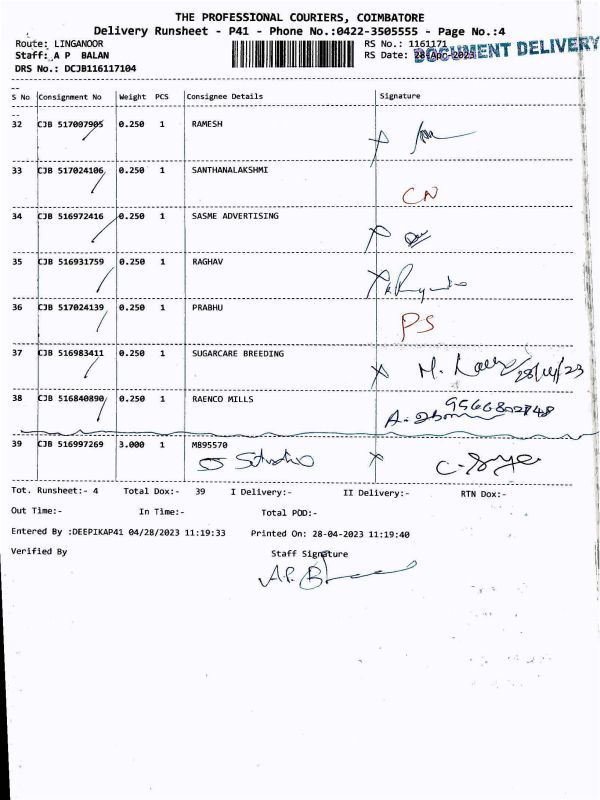 THE PROFESSIONAL COURIERS, COIMBATORE
Delivery Runsheet - P41 - Phone No.:0422-3505555 - Page No.:4
Route: LINGANOOR RS No.: 1161171
DOCUMENT DELIVERY
Staff: A P BALAN RS Date: 28-Apr-2023
DRS No.: DCJB116117104
S No Consignment No Weight PCS Consignee Details Signature
32 CJB 517097905 0.250 1 RAMESH
33 CJB 517024106 0.250 1 SANTHANALAKSHMI
CN
34 CJB 516972416 0.250 1 SASME ADVERTISING
35 CJB 516931759 0.250 1 RAGHAV
36 CJB 517024139 0.250 1 PRABHU
PS
37 CJB 516983411 0.250 1 SUGARCARE BREEDING
M.
38 CJB 516840890 0.250 1 RAENCO MILLS
39 CJB 516997269 3.000 1 MB95570
Tot. Runsheet:- 4 Total Dox:- 39 I Delivery:- II Delivery:- RTN Dox:-
Out Time:- In Time:- Total POD:-
Entered By :DEEPIKAP41 04/28/2023 11:19:33 Printed On: 28-04-2023 11:19:40
Verified By Staff Signature